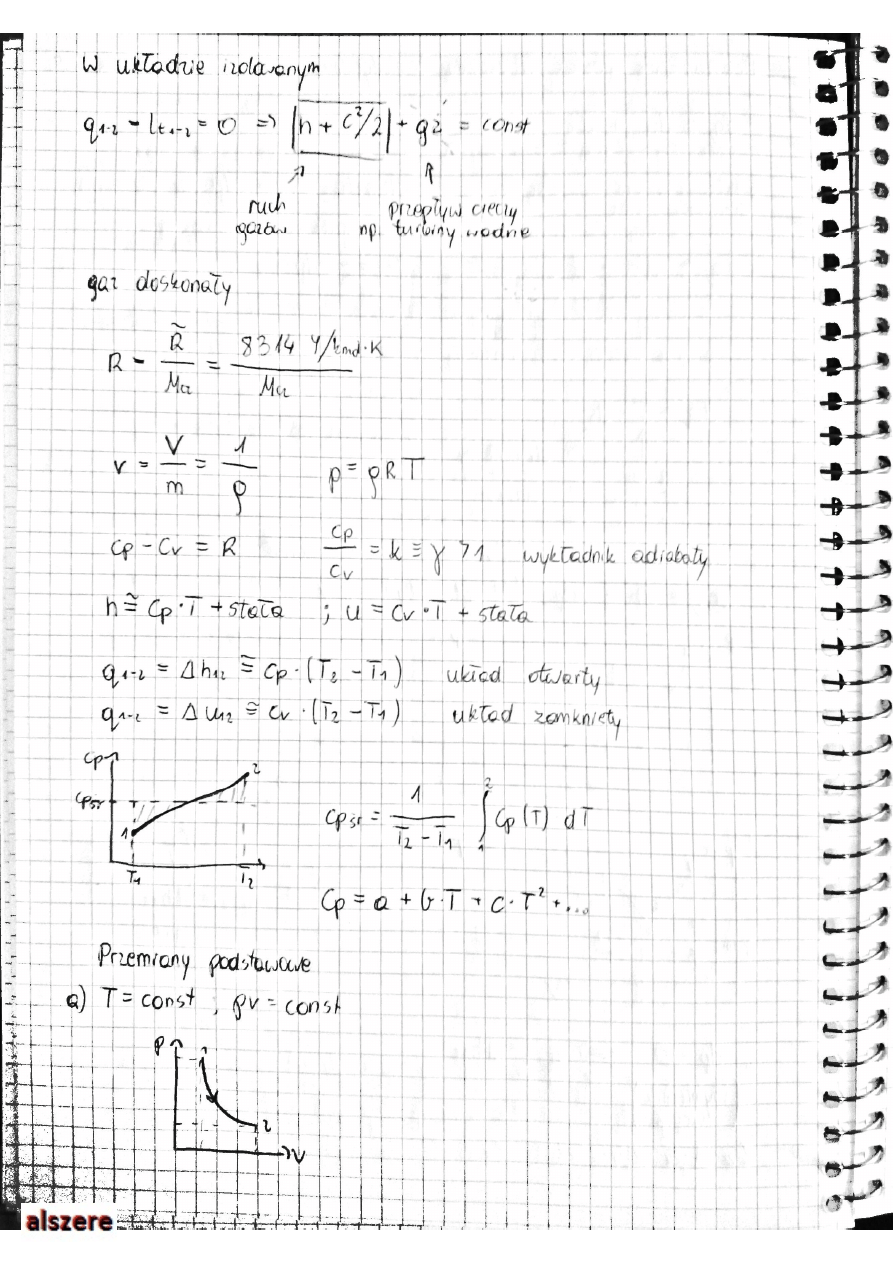 W układzie izolowanym
q₁₋₂ - lt₁₋₂ = 0 => |h + c²/2| + gz = const
ruch gazów
przepływ cieczy np. turbiny wodne
gaz doskonały
R = R̃/Mcz = 8314 J/kmol·K / Mcz
v = V/m = 1/ρ p = ρRT
cp - cv = R cp/cv = k ≡ γ > 1 wykładnik adiabaty
h ≅ cp·T + stała ; u = cv·T + stała
q₁₋₂ = Δh₁₂ ≅ cp·(T₂ - T₁) układ otwarty
q₁₋₂ = Δu₁₂ ≅ cv·(T₂ - T₁) układ zamknięty
cp
2
cpśr
1
T₁ T₂
cpśr = 1/(T₂ - T₁) ∫₁² cp(T) dT
cp = a + b·T + c·T² + ...
Przemiany podstawowe
a) T = const ; pv = const
p
1
2
v
alszere